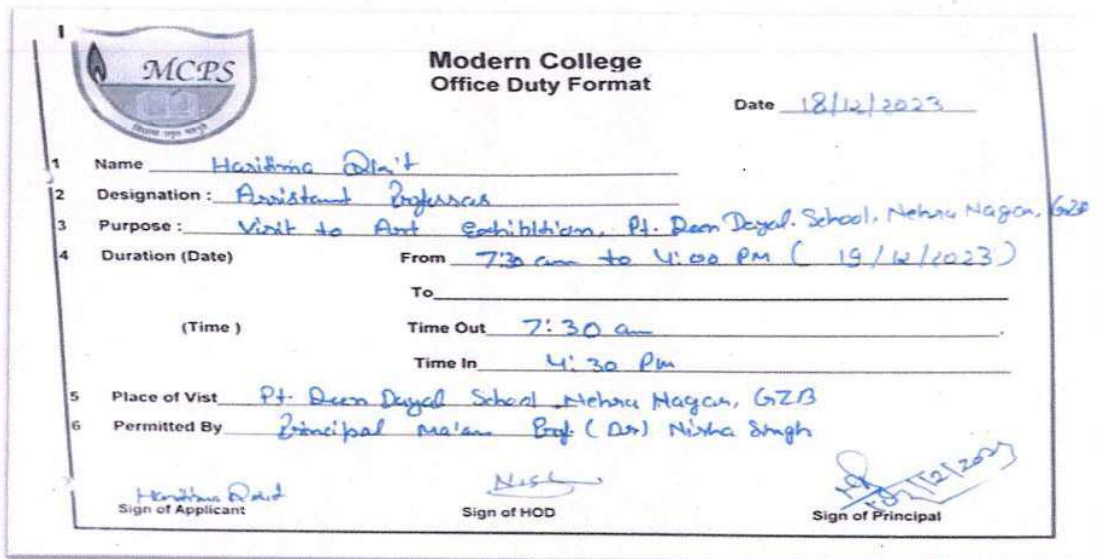 MCPS
Modern College
Office Duty Format
Date 18/12/2023
1 Name Haritima
2 Designation : Assistant Professor
3 Purpose : Visit to Art Exhibition, Pt. Deen Dayal. School, Nehru Nagar, GZB
4 Duration (Date) From 7:30 am to 4:00 PM ( 19/12/2023 )
To
(Time ) Time Out 7:30 am
Time In 4:30 Pm
5 Place of Vist Pt. Deen Dayal School Nehru Nagar, GZB
6 Permitted By Principal Ma'am Prof. (Dr) Nisha Singh
Haritima
Sign of Applicant Sign of HOD Sign of Principal